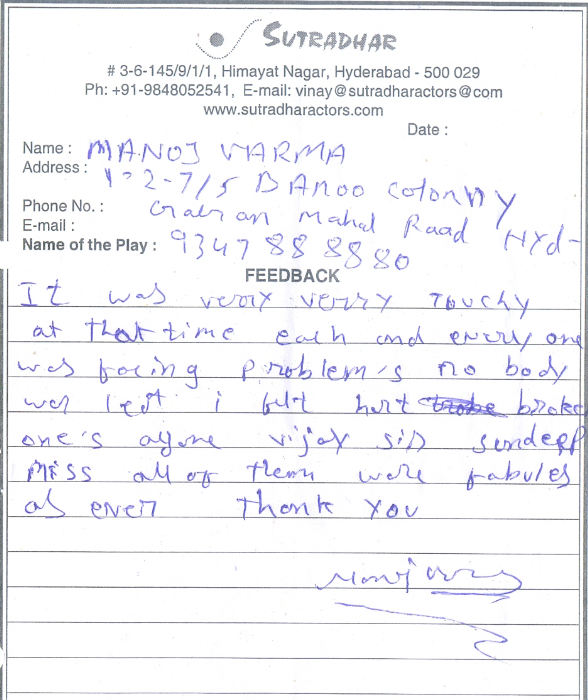 SUTRADHAR
# 3-6-145/9/1/1, Himayat Nagar, Hyderabad - 500 029
Ph: +91-9848052541, E-mail: vinay@sutradharactors@com
www.sutradharactors.com
Date :
Name : MANOJ VARMA
Address : 1-2-7/5 BANOO colonny
Phone No. : Mahal Road Hyd-
E-mail :
Name of the Play : 9347 88 88 80
FEEDBACK
It was verry verry Touchy
at that time each and every one
was facing problem's no body
was left i felt hert broke
one's agane vijay sir sundeep
miss all of them were fabules
as ever Thank you